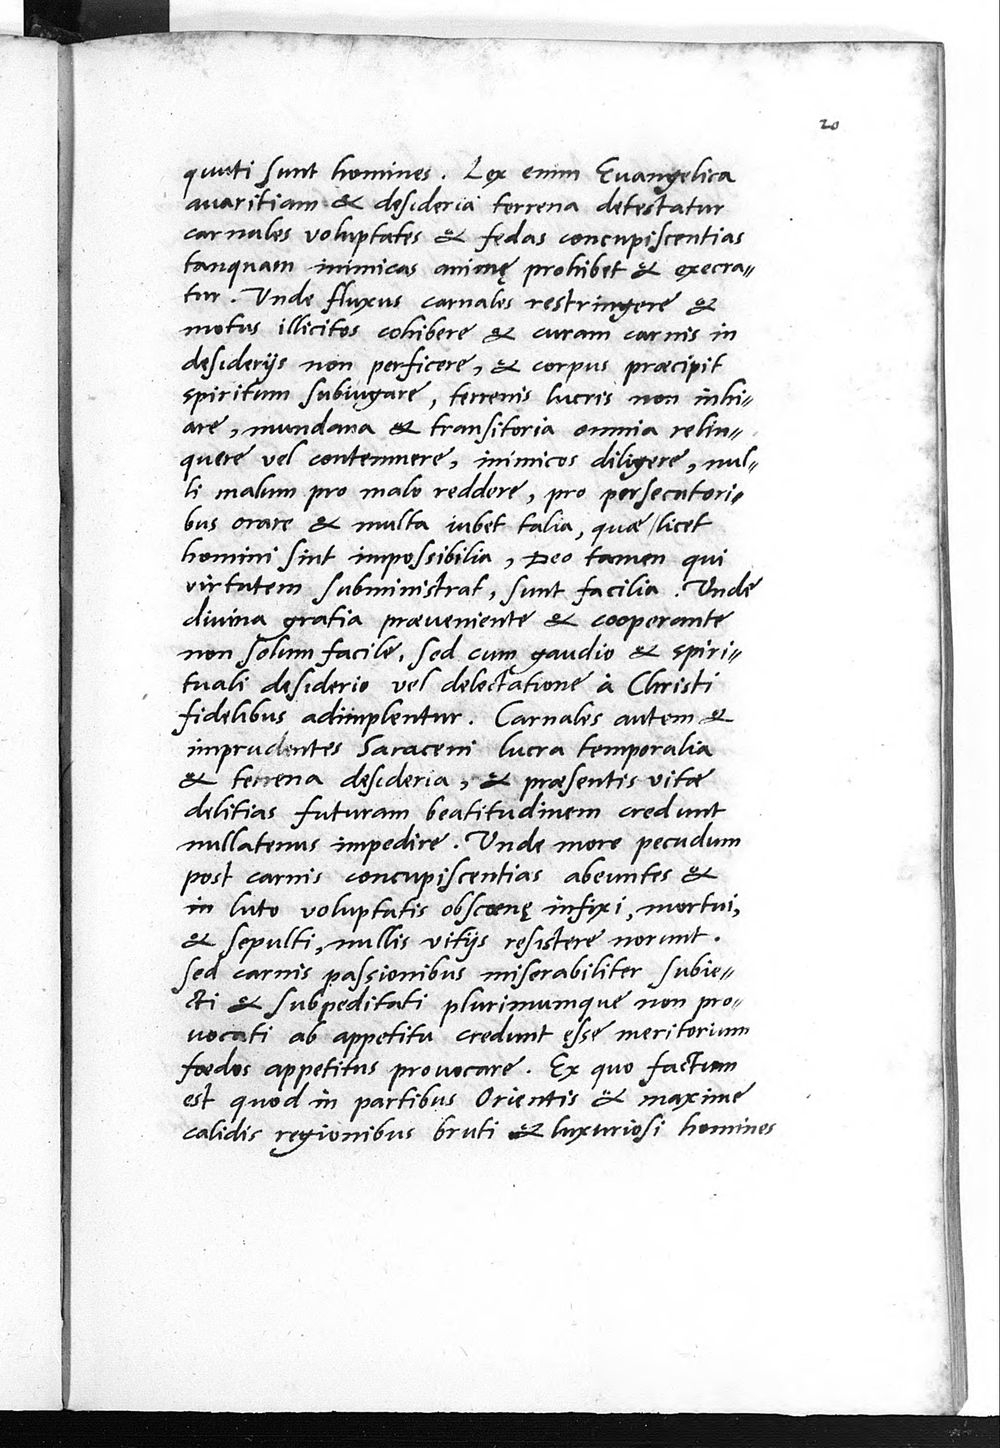 20
quuti sunt homines. Lex enim Euangelica
auaritiam & desideria terrena detestatur
carnales voluptates & fedas concupiscentias
tanquam inimicas animę prohibet & execra„
tur. Unde fluxus carnales restringere &
motus illicitos cohibere & curam carnis in
desiderijs non perficere, & corpus præcipit
spiritum subiugare, terrenis lucris non inhi„
are, mundana & transitoria omnia relin„
quere vel contemnere, inimicos diligere, nul„
li malum pro malo reddere, pro persecutori„
bus orare & multa iubet talia, quæ licet
homini sint impossibilia, Deo tamen qui
virtutem subministrat, sunt facilia. Unde
diuina gratia præueniente & cooperante
non solum facile, sed cum gaudio & spiri„
tuali desiderio vel delectatione à Christi
fidelibus adimplentur. Carnales autem &
imprudentes Saraceni lucra temporalia
& terrena desideria, & præsentis vitæ
delitias futuram beatitudinem credunt
nullatenus impedire. Unde more pecudum
post carnis concupiscentias abeuntes &
in luto voluptatis obscœnę infixi, mortui,
& sepulti, nullis vitijs resistere norunt.
sed carnis passionibus miserabiliter subie„
cti & subpeditati plurimumque non pro„
uocati ab appetitu credunt esse meritorium
fœdos appetitus prouocare. Ex quo factum
est quod in partibus Orientis & maxime
calidis regionibus bruti & luxuriosi homines